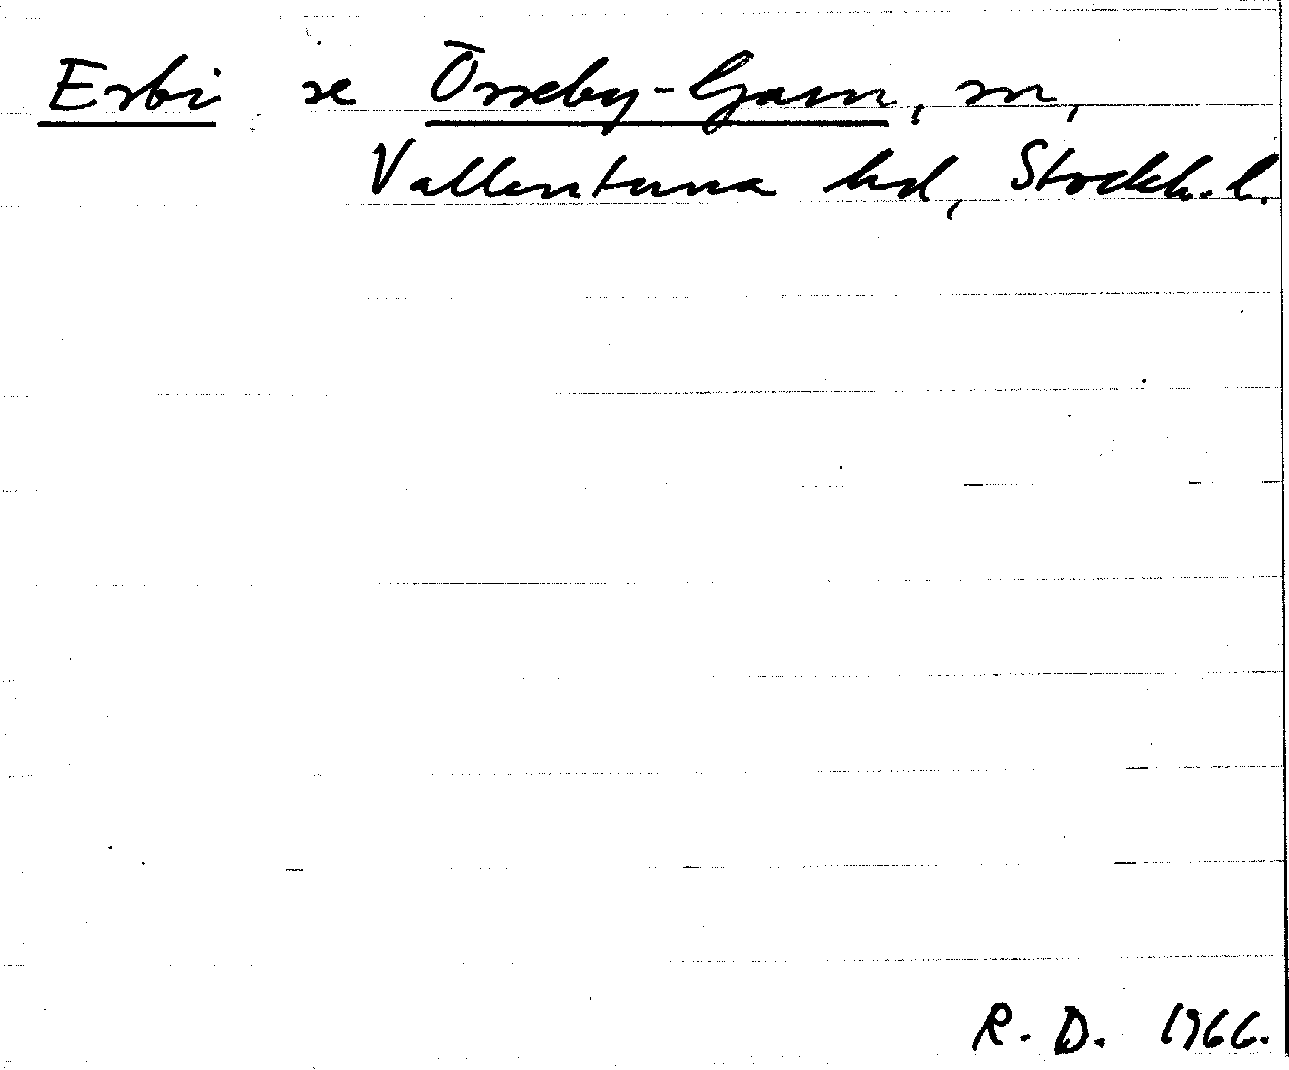 Erbi se Össeby-Garn, sn,
Vallentuna hd, Stockh. l.
R. D. 1966.